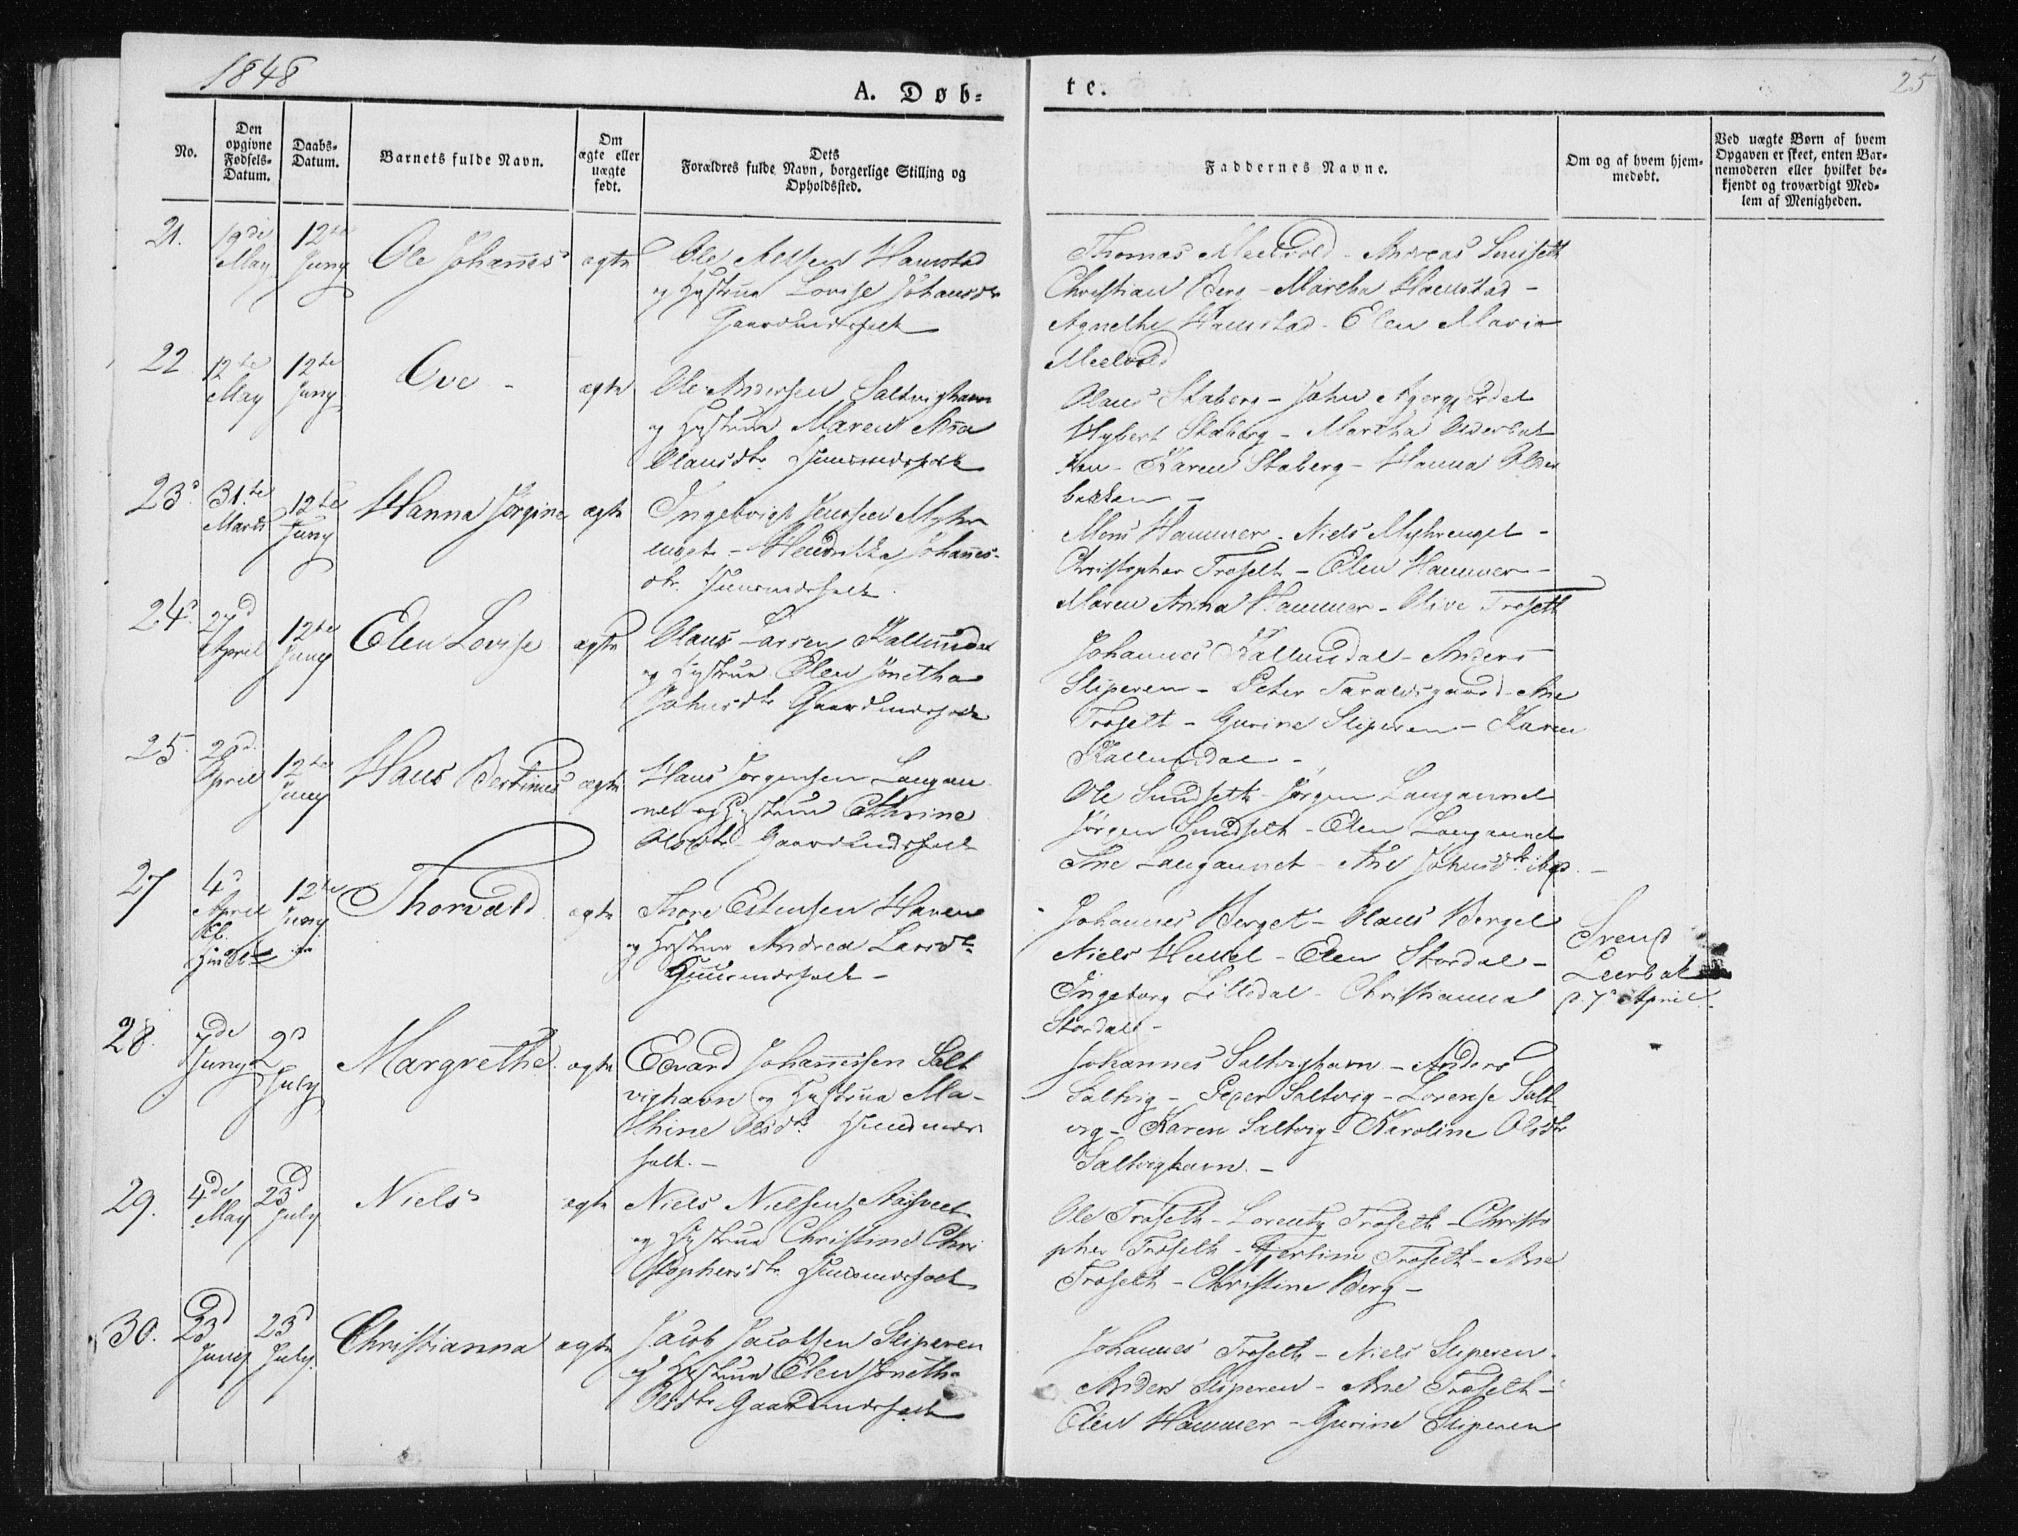 1848
A. Døb-
te.
25
No.
Den opgivne Fødsels-Datum.
Daabs-Datum.
Barnets fulde Navn.
Om ægte eller uægte født.
Dets Forældres fulde Navn, borgerlige Stilling og Opholdssted.
Faddernes Navne.
Om og af hvem hjem-medøbt.
Ved uægte Børn af hvem Opgaven er skeet, enten Bar-nemoderen eller hvilket be-kjendt og troværdigt Med-lem af Menigheden.
21. 19de May 12te Juny Ole Johannes ægte Ole Haustad
og Hustrue Lovise Johansdr
Gaardmandsfolk
Thomas Meelvold - Andreas
Christian Berg - Martha Haustad -
Agnethe Haustad - Elen Maria
Meelvold
22 12te May 12te Juny Ove - ægte Ole Andersen Saltvighavn
og Hustrue Maren Ana
Olausdr. Huusmandsfolk
Olaus Staberg - John Agergjerdet
Hybert Staberg - Martha Olderbak
ken - Karen Staberg - Hanna Older
bakken -
23d 31te Marts 12te Juny Hanna Jørgine ægte Ingebrigt Jenssen Myhr
enget - Hendrikka Johannes-
dr. Huusmandsfolk.
Mons Hammer - Niels Myhrenget -
Christopher Troseth - Elen Hammer -
Maren Anna Hammer - Olive Troseth
24d 27d April 12te Juny Elen Lovise ægte Olaus Larsen Kallundal
og Hustrue Elen Jonetha
Johnsdr Gaardmandsfolk
Johannes Kallundal - Anders
Sliperen - Peter Taraldsgaard - Ane
Troseth - Gurine Sliperen - Karen
Kallundal -
25. 28d April 12te Juny Hans Bertinus ægte Hans Jørgensen Langan
net og Hustrue Cathrine
Olsdr Gaardmandsfolk
Ole Sundseth - Jørgen Langannet
Jørgen Sundseth - Elen Langannet
Ane Langannet - Ane Johnsdr ibid. -
27 4d April 12te Juny Thorvald ægte Thore Estensen Haven
og Hustrue Andrea Larsdr
Huusmandsfolk -
Johannes Berget - Olaus Berget
Niels - Elen Stordal -
Ingeborg Lilledal - Christianna
Stordal -
Svend
Leerbak
d. 7d April.
28. 7de Juny 2d July Margrethe ægte Edvard Johannesen Salt
vighavn og Hustrue Ma-
thine Olsdr. Huusmands
folk. -
Johannes Saltvighavn - Anders
Saltvig - Peter Saltvig - Lorense Salt
vig - Karen Saltvig - Karoline Olsdr
Saltvighavn. -
29. 4de May 23d July Niels ægte Niels Nielsen
og Hustrue Christine Chri
stophersdr. Huusmandsfolk
Ole Troseth - Lorentz Troseth - Christo
pher Troseth - Troseth - Ane
Troseth - Christine Berg -
30. 23d Juny 23d July. Christianna ægte Jacob Jacobsen Sliperen
og Hustrue Elen Jonetha
Olsdr Gaardmandsfolk
Johannes Troseth - Niels Sliperen.
Anders Sliperen - Ane Troseth -
Elen Hammer - Gurine Sliperen